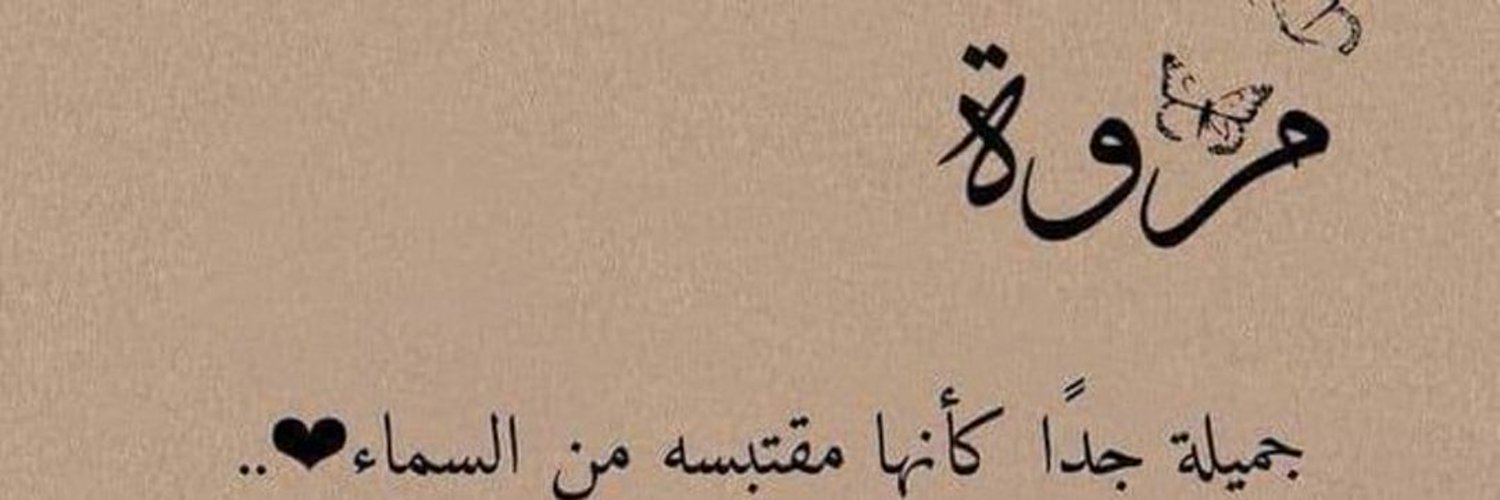 مروة
جميلة جدًا كأنها مقتبسه من السماء❤..